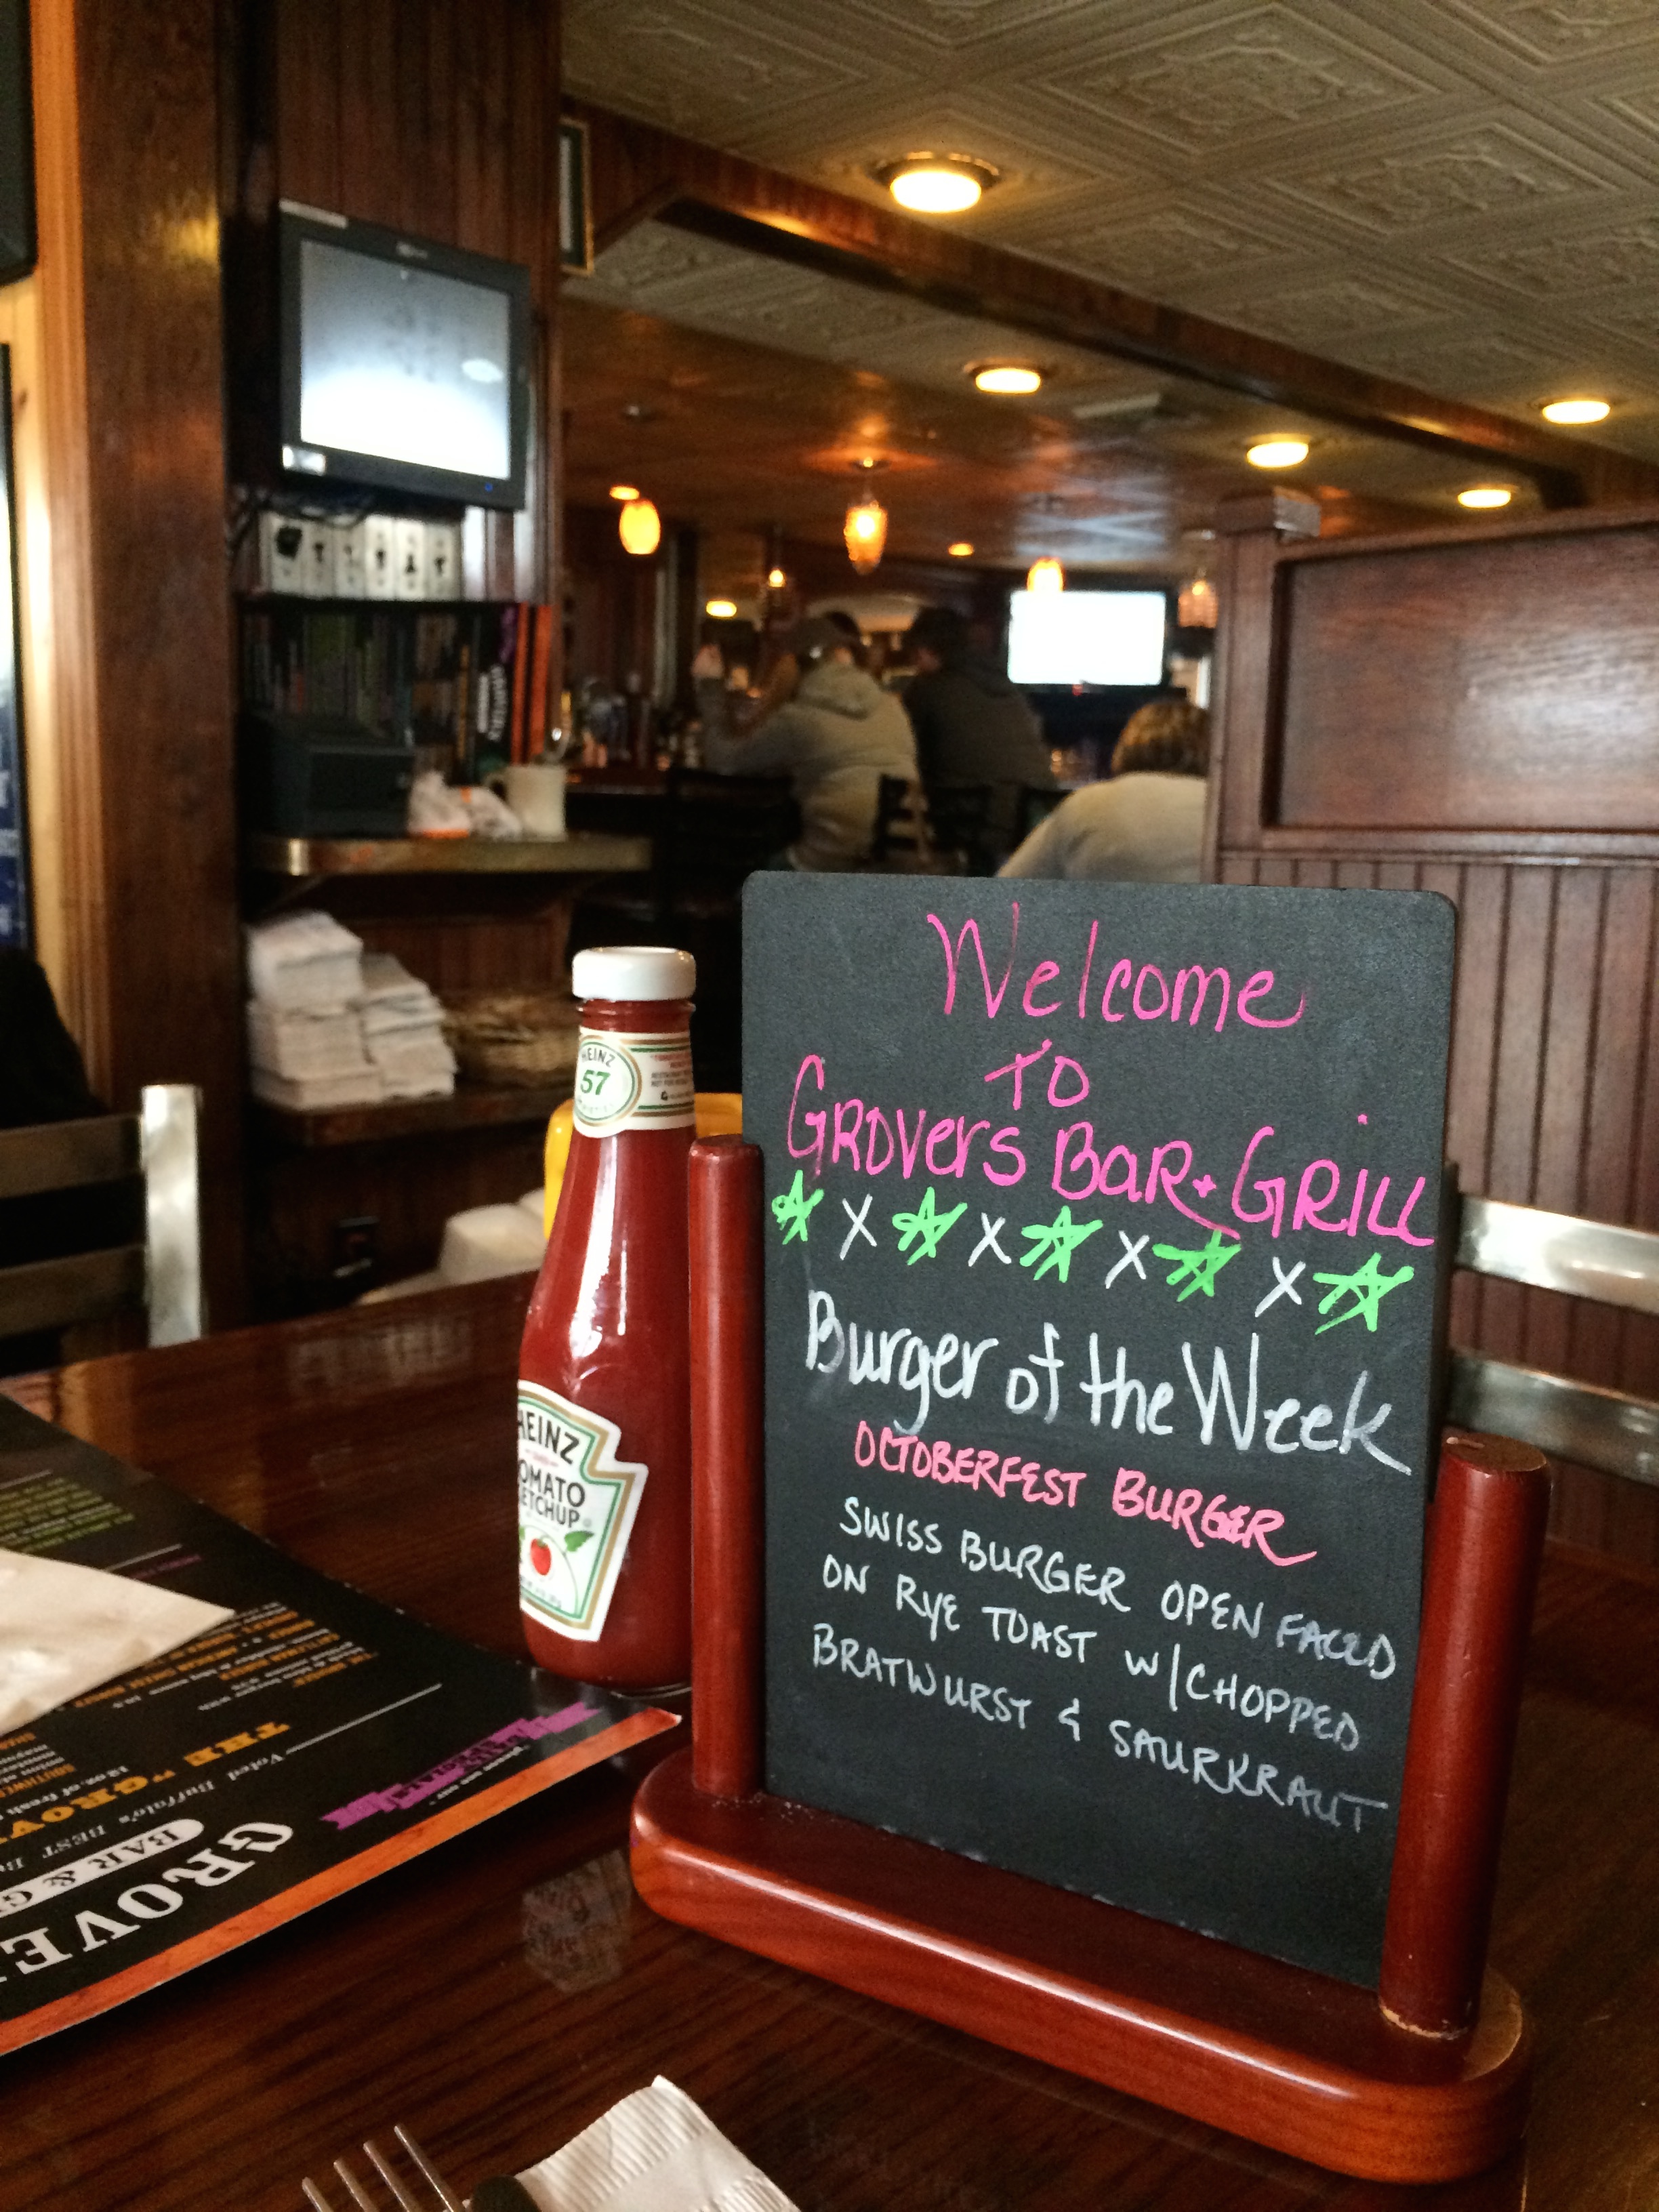 Welcome
TO
GROVERS BAR + GRILL
X X X X
Burger of the Week
OCTOBERFEST BURGER
SWISS BURGER OPEN FACED
ON RYE TOAST W/CHOPPED
BRATWURST & SAURKRAUT
HEINZ
57
HEINZ
TOMATO
KETCHUP
GROVE
BAR & G
Voted Buffalo's BEST
THE "GROV
SOUTHWES
12 oz. of fresh